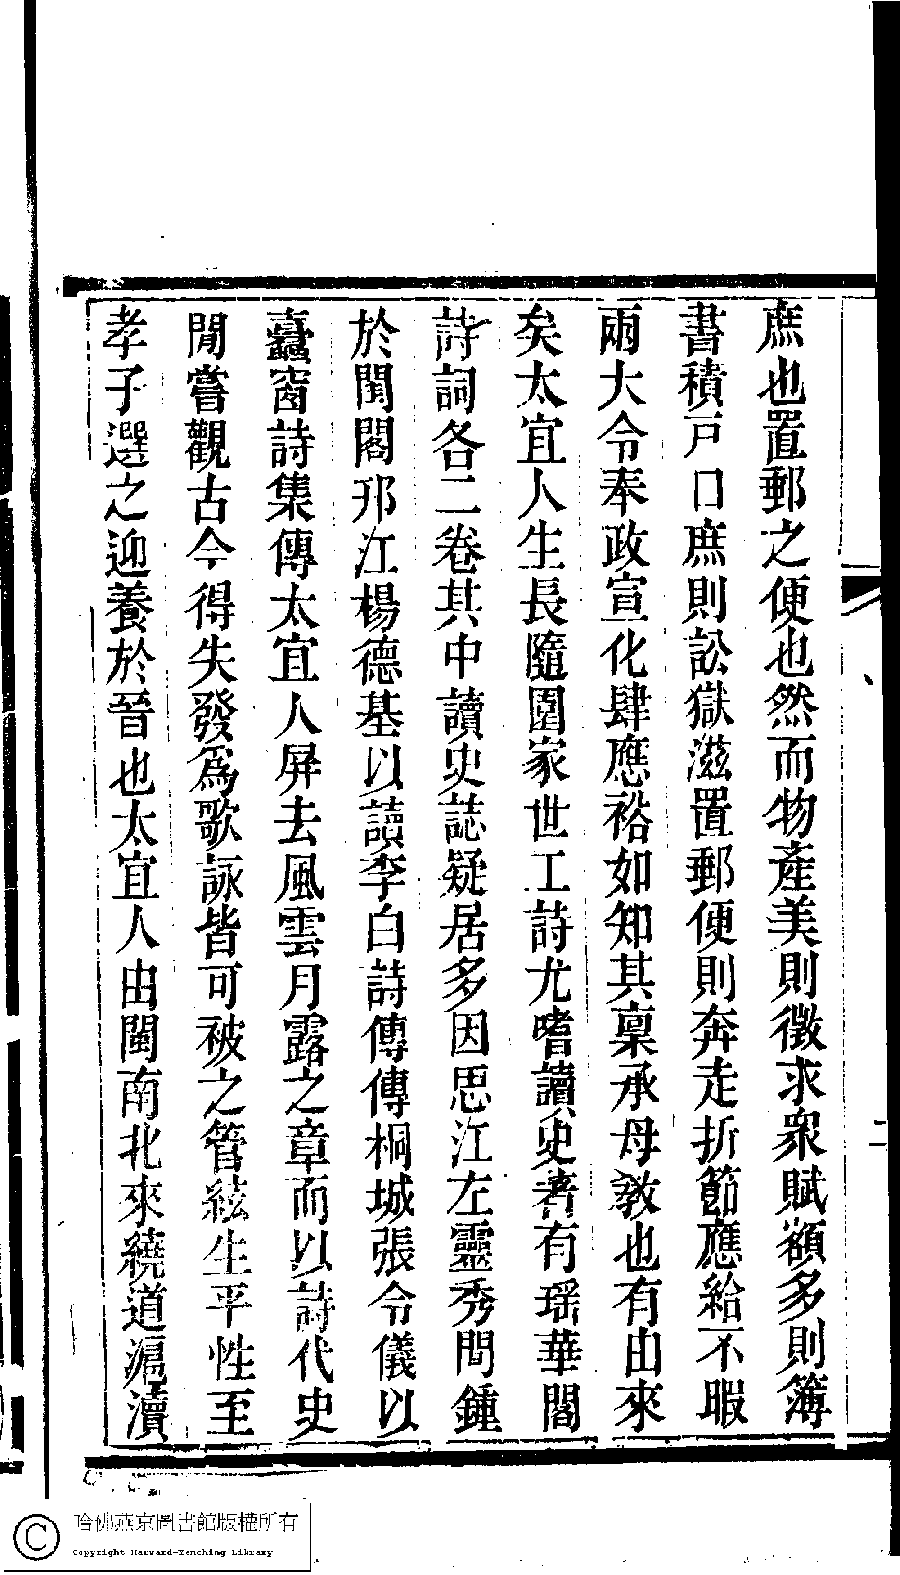 庶也置郵之便也然而物產美則徵求眾賦額多則簿
書積戶口庶則訟獄滋置郵便則奔走折節應給不暇
兩大令奉政宣化肆應裕如知其稟承母教也有由來
矣太宜人生長隨園家世工詩尤嗜讀史著有瑶華閣
詩詞各二卷其中讀史誌疑居多因思江左靈秀間鍾
於閨閣邗江楊德基以讀李白詩傳傳桐城張令儀以
蠹窗詩集傳太宜人屏去風雲月露之章而以詩代史
閒嘗觀古今得失發爲歌詠皆可被之管絃生平性至
孝子選之迎養於晉也太宜人由閩南北來繞道滬瀆
二
哈佛燕京圖書館版權所有
Copyright Harvard-Yenching Library